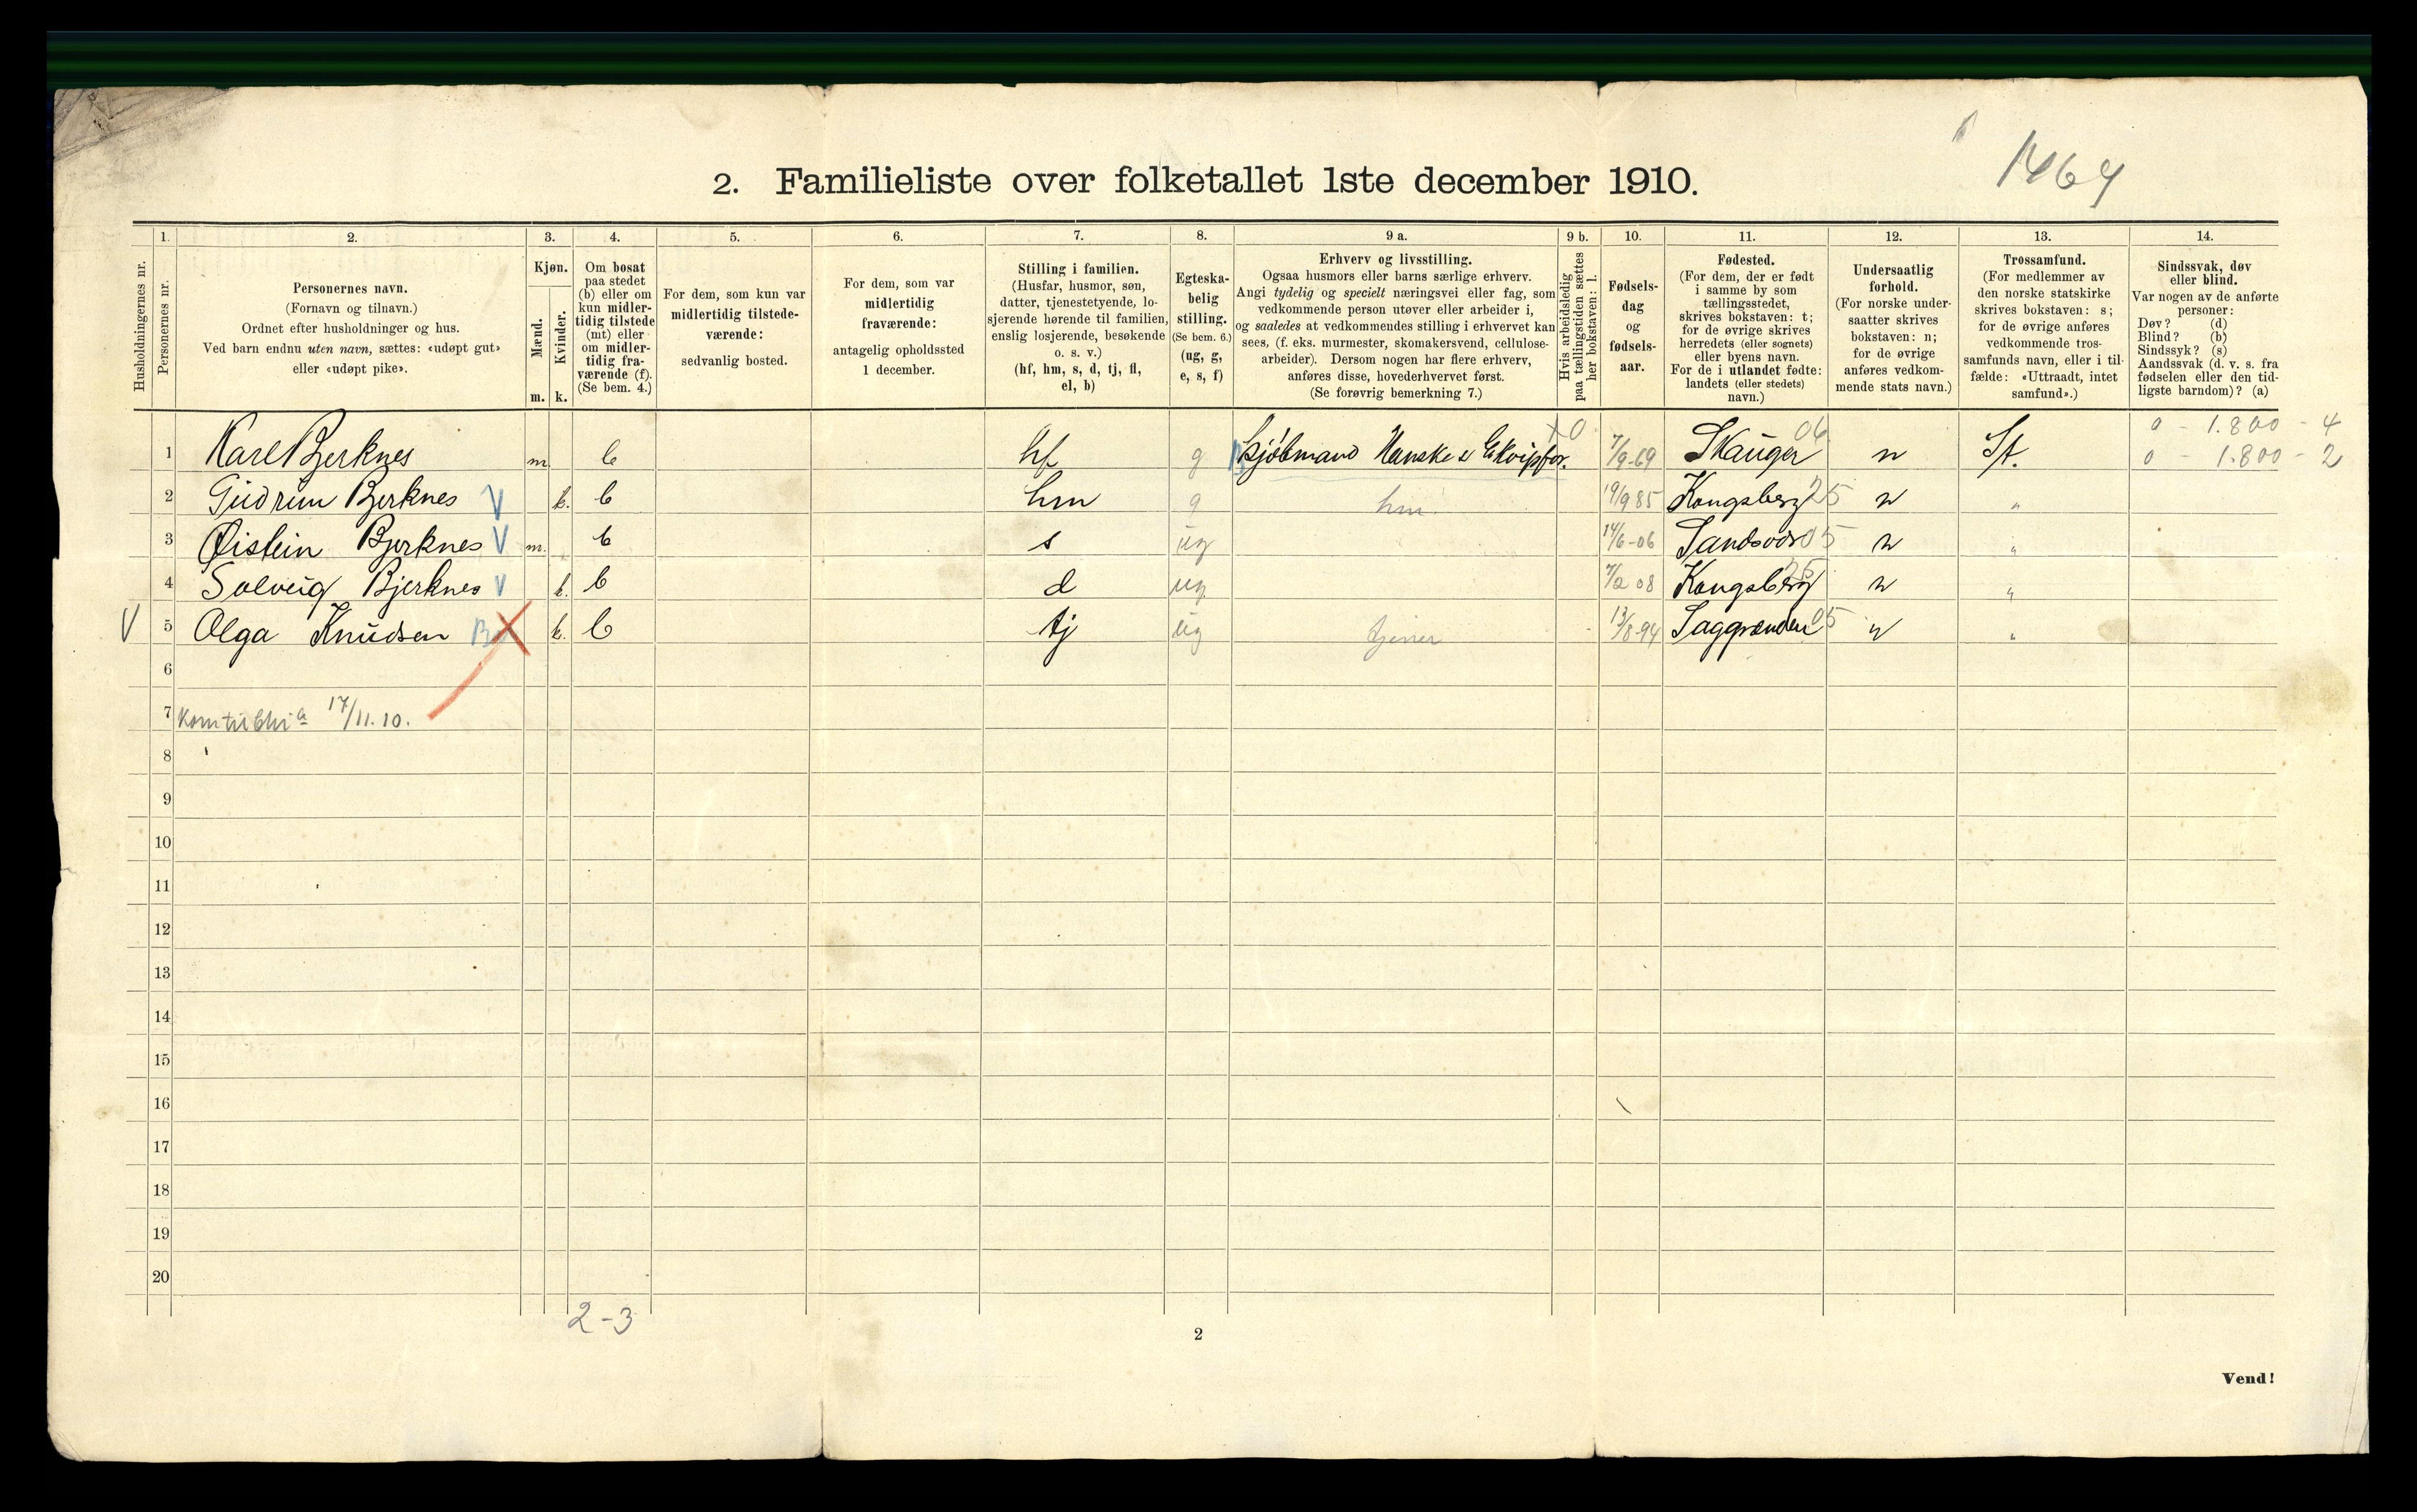 1464
2. Familieliste over folketallet 1ste december 1910.
Husholdningernes nr.
1.
Personernes nr.
2.
Personernes navn.
(Fornavn og tilnavn.)
Ordnet efter husholdninger og hus.
Ved barn endnu uten navn, sættes: «udøpt gut»
eller «udøpt pike».
3.
Kjøn.
Mænd.
Kvinder.
m. k.
4.
Om bosat
paa stedet
(b) eller om
kun midler-
tidig tilstede
(mt) eller
om midler-
tidig fra-
værende (f).
(Se bem. 4.)
5.
For dem, som kun var
midlertidig tilstede-
værende:
sedvanlig bosted.
6.
For dem, som var
midlertidig
fraværende:
antagelig opholdssted
1 december.
7.
Stilling i familien.
(Husfar, husmor, søn,
datter, tjenestetyende, lo-
sjerende hørende til familien,
enslig losjerende, besøkende
o. s. v.)
(hf, hm, s, d, tj, fl,
el, b)
8.
Egteska-
belig
stilling.
(Se bem. 6.)
(ug, g,
e, s, f)
9 a.
Erhverv og livsstilling.
Ogsaa husmors eller barns særlige erhverv.
Angi tydelig og specielt næringsvei eller fag, som
vedkommende person utøver eller arbeider i,
og saaledes at vedkommendes stilling i erhvervet kan
sees, (f. eks. murmester, skomakersvend, cellulose-
arbeider). Dersom nogen har flere erhverv,
anføres disse, hovederhvervet først.
(Se forøvrig bemerkning 7.)
9 b.
Hvis arbeidsledig
paa tællingstiden sættes
her bokstaven: l.
10.
Fødsels-
dag
og
fødsels-
aar.
11.
Fødested.
(For dem, der er født
i samme by som
tællingsstedet,
skrives bokstaven: t;
for de øvrige skrives
herredets (eller sognets)
eller byens navn.
For de i utlandet fødte:
landets (eller stedets)
navn.)
12.
Undersaatlig
forhold.
(For norske under-
saatter skrives
bokstaven: n;
for de øvrige
anføres vedkom-
mende stats navn.)
13.
Trossamfund.
(For medlemmer av
den norske statskirke
skrives bokstaven: s;
for de øvrige anføres
vedkommende tros-
samfunds navn, eller i til-
fælde: «Uttraadt, intet
samfund».)
14.
Sindssvak, døv
eller blind.
Var nogen av de anførte
personer:
Døv? (d)
Blind? (b)
Sindssyk? (s)
Aandssvak (d. v. s. fra
fødselen eller den tid-
ligste barndom)? (a)
0 - 1.800 - 4
1 Karl Bjerknes m. b hf g Kjøbmand Hanske & Ekvipfor. x0 7/9-69 Skauger 06 n St. 0 - 1.800 - 2
2 Gudrun Bjerknes V k. b hm g hm 19/9 85 Kongsberg 25 n "
3 Øistein Bjerknes V m. b s ug 14/6-06 Sandsvær 05 n "
4 Solveig Bjerknes V k. b d ug. 7/2 08 Kongsberg 25 n "
V 5 Olga Knudsen k. b tj ug tjener 13/8-94 Saggrenden 05 n "
6
7 Kom til Chr.a 17/11.10.
8
9
10
11
12
13
14
15
16
17
18
19
20
2-3
2
Vend!